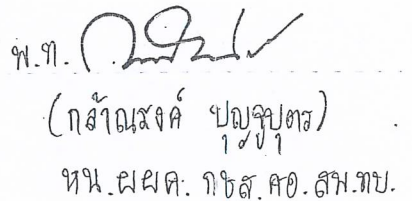 พ.ท.
(กล้าณรงค์ ปุญจูบุตร)
หน.ผยค. กขส.คอ.สพ.ทบ.